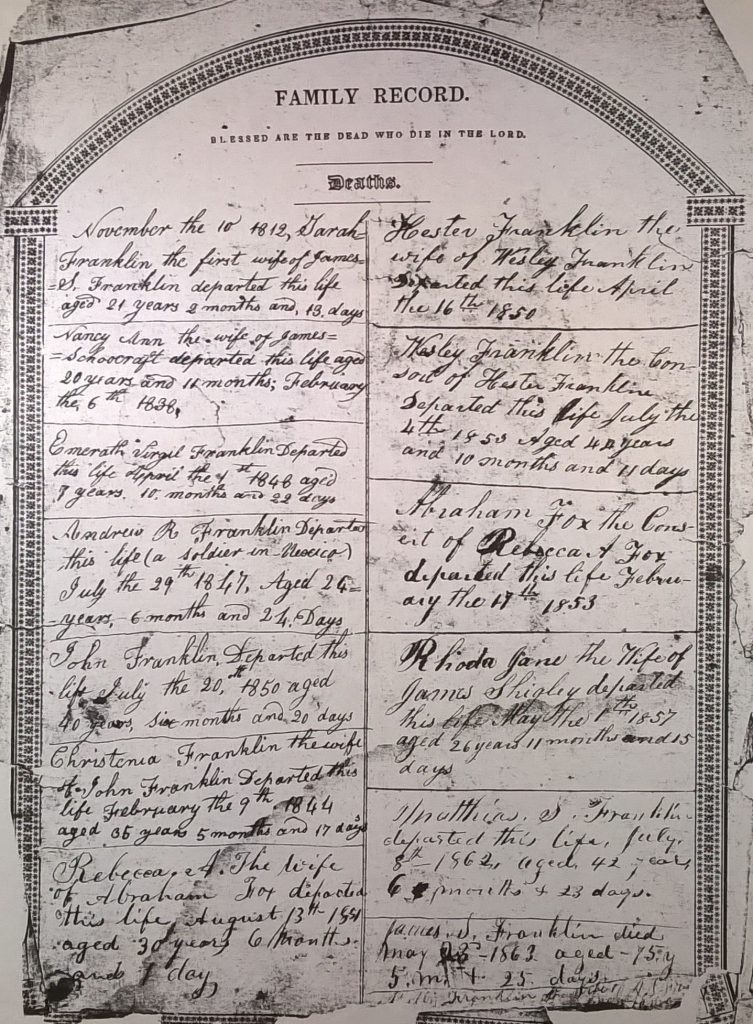 FAMILY RECORD.
BLESSED ARE THE DEAD WHO DIE IN THE LORD.
Deaths.
November the 10 1812, Sarah
Franklin the first wife of James
S. Franklin departed this life
aged 21 years 2 months and, 13, days
Nancy Ann the wife of James
Schoocraft departed this life aged
20 years and 11 months; February
the, 6th 1838,
Emerath Virgil Franklin Departed
this life April the 1st 1848 aged
7 years. 10. months and 22 days
Andrew R Franklin Departed
this life (a soldier in Mexico)
July the 29th 1847, Aged 24
years, 6 months and 24. Days
John Franklin, Departed this
life July the 20,th 1850 aged
40 years, six months and 20 days
Christenia Franklin the wife
of John Franklin Departed this
life February the 9th 1844
aged 35 years 5 months and 17 days
Rebecca, A. The Wife
of Abraham Fox departed
this life, August 13th
aged 30 years 6 Months.
and 1 day,
Hester Franklin the
wife of Wesley Franklin
Departed this life April
the 16th 1850
Wesley Franklin the Con-
sort of Hester Franklin
Departed this life July the
4th 1853 Aged 44 years
and 10 months and 11 days
Abraham Fox the Cons-
ort of Rebecca A Fox
departed this life Febru-
ary the 17th 1853
Rhoda Jane the Wife of
James Shigley departed
this life May the 1th 1857
aged 26 years 11 months and 15
days
Matthias. S. Franklin
departed this life, July.
8th 1862, aged, 42 years,
6 months + 23 days.
James, S, Franklin died
May 1863 aged - 75. y
5. m. + 25 days.
Franklin